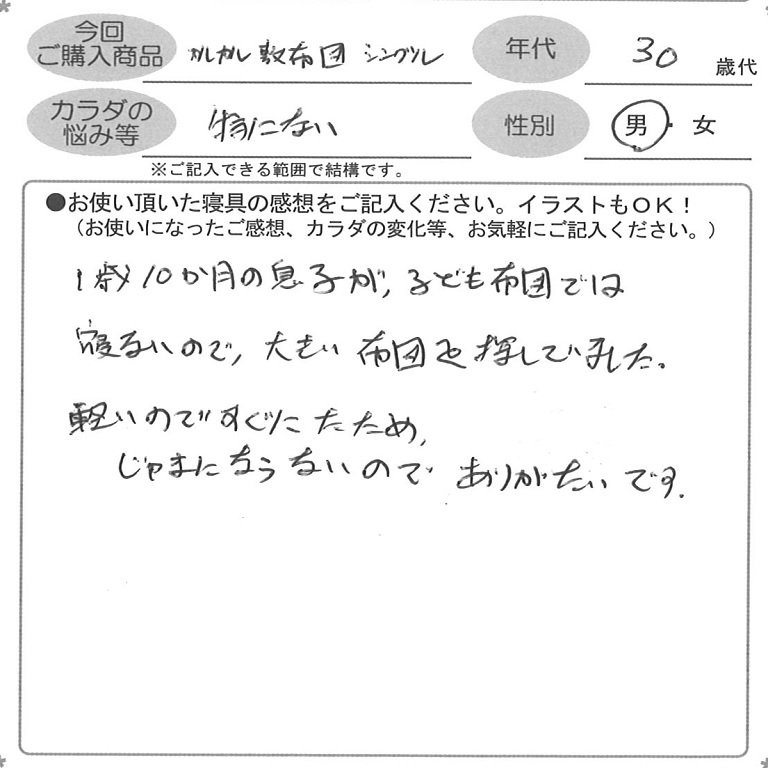 今回
ご購入商品
カルカル敷布団 シングル
年代
30
歳代
カラダの
悩み等
特にない
性別
男・女
※ご記入できる範囲で結構です。
●お使い頂いた寝具の感想をご記入ください。イラストもOK！
（お使いになったご感想、カラダの変化等、お気軽にご記入ください。）
1歳10か月の息子が、子ども布団では
寝ないので、大きい布団を探していました。
軽いのですぐにたため、
じゃまにならないので ありがたいです。